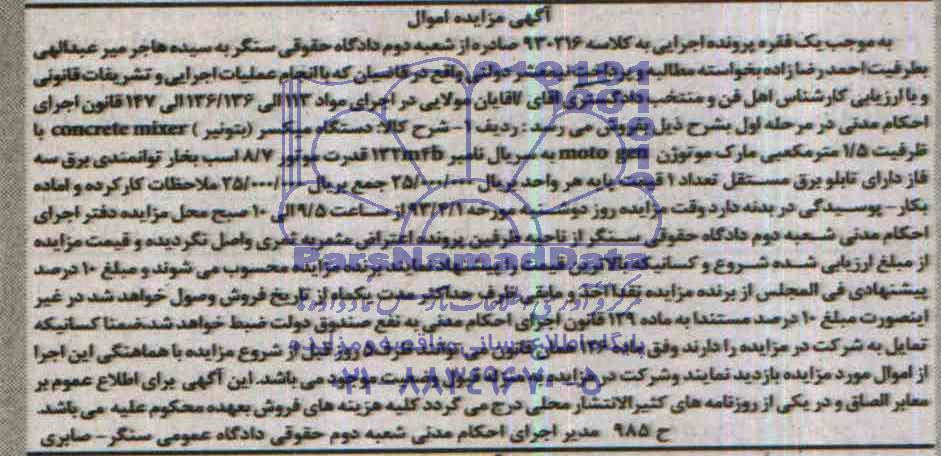 آگهی مزایده اموال
به موجب یک فقره پرونده اجرایی به کلاسه ۹۳۰۲۱۶ صادره از شعبه دوم دادگاه حقوقی سنگر به سیده هاجر میر عبدالهی
بطرفیت احمد رضا زاده بخواسته مطالبه و پرداخت نیم عشر دولتی واقع در قاضیان که با انجام عملیات اجرایی و تشریفات قانونی
و با ارزیابی کارشناس اهل فن و منتخب دادگستری آقای / آقایان مولایی در اجرای مواد ۱۱۳ الی ۱۲۶/۱۳۶ الی ۱۴۷ قانون اجرای
احکام مدنی در مرحله اول بشرح ذیل بفروش می رسد : ردیف ۱- شرح کالا: دستگاه میکسر (بتونیر ) concrete mixer با
ظرفیت ۱/۵ مترمکعبی مارک موتوژن moto gen به سریال نامبر ۱۳۲m۴b قدرت موتور ۸/۷ اسب بخار توانمندی برق سه
فاز دارای تابلو برق مستقل تعداد ۱ قیمت پایه هر واحد بریال ۲۵/۰۰۰/۰۰۰ جمع بریال ۲۵/۰۰۰/۰۰۰ ملاحظات کارکرده و اماده
بکار - پوسیدگی در بدنه دارد وقت مزایده روز دوشنبه مورخه ۹۳/۴/۱ از ساعت ۹/۵ الی ۱۰ صبح محل مزایده دفتر اجرای
احکام مدنی شعبه دوم دادگاه حقوقی سنگر از ناحیه طرفین پرونده اعتراض مثمر به ثمری واصل نگردیده و قیمت مزایده
از مبلغ ارزیابی شده شروع و کسانیکه بالاترین قیمت را پیشنهاد نمایند برنده مزایده محسوب می شوند و مبلغ ۱۰ درصد
پیشنهادی فی المجلس از برنده مزایده نقدا اخذ و مابقی ظرف حداکثر مدت یکماه از تاریخ فروش وصول خواهد شد در غیر
اینصورت مبلغ ۱۰ درصد مستندا به ماده ۱۲۹ قانون اجرای احکام مدنی به نفع صندوق دولت ضبط خواهد شد.ضمنا کسانیکه
تمایل به شرکت در مزایده را دارند وفق ماده ۱۲۶ همان قانون می توانند ظرف ۵ روز قبل از شروع مزایده با هماهنگی این اجرا
از اموال مورد مزایده بازدید نمایند وشرکت در مزایده موجود می باشد. این آگهی برای اطلاع عموم بر
معابر الصاق و در یکی از روزنامه های کثیرالانتشار محلی درج می گردد کلیه هزینه های فروش بعهده محکوم علیه می باشد.
ح ۹۸۵ مدیر اجرای احکام مدنی شعبه دوم حقوقی دادگاه عمومی سنگر - صابری
ParsNamadData
پایگاه اطلاع رسانی مناقصه و مزایده
۰۲۱-۸۸۳۴۹۶۷۰-۵